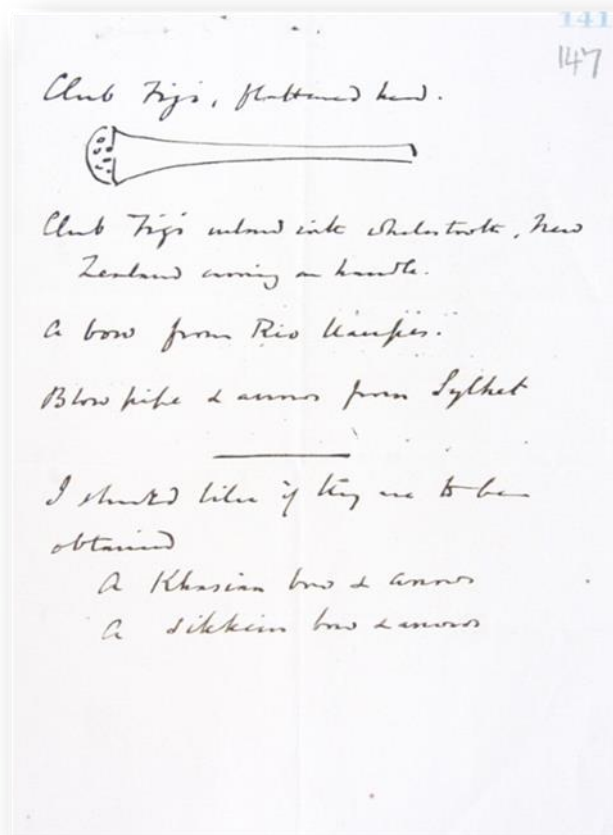 141
147
Club Fiji, flattened head.
Club Fiji inlaid with whales tooth, New
Zealand carving on handle.
A bow from Rio Uaupés.
Blow pipe & arrows from Sylhet
I should like if they are to be
obtained
A Khasian bow & arrows
A Sikkim bow & arrows